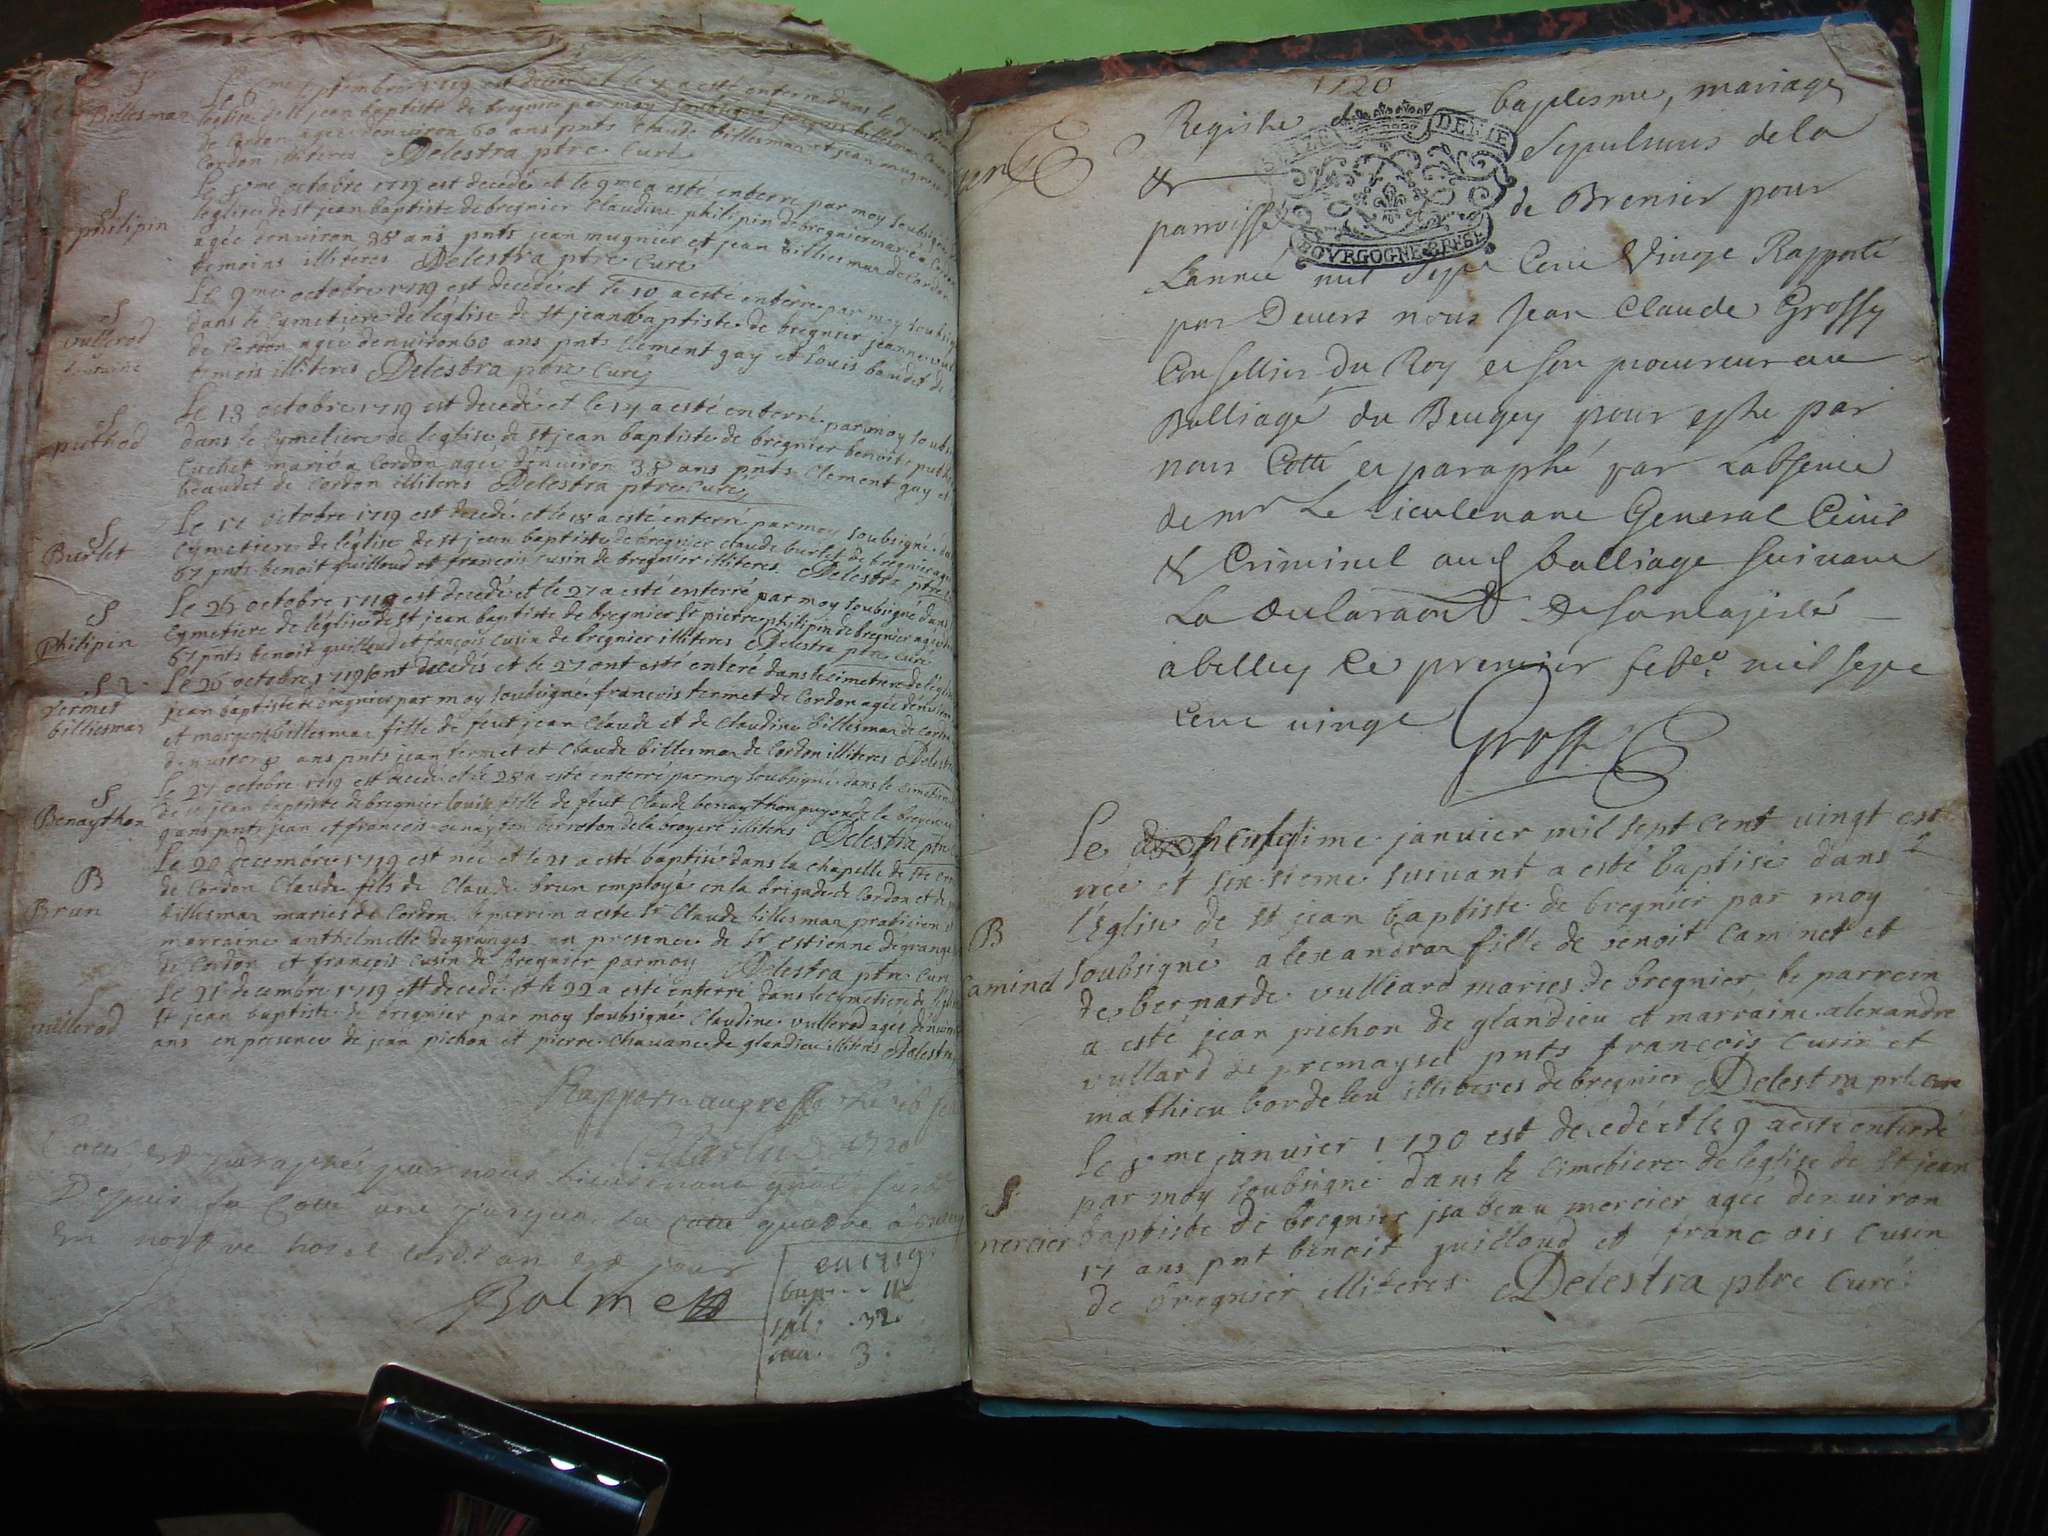 S
Billesmaz
de Cordon agée denviron 60 ans pnts Claude billesmaz et jean mugnier
Cordon illiteres Delestra ptre Curé
S
philipin
Le 8me octobre 1719 est decedée et le 9me a esté enterre par moy soubsigné
leglise de st jean baptiste de bregnier Claudine philipin de bregnier mariée a Cordon
agée denviron 38 ans pnts jean mugnier et jean billiesmaz de Cordon
temoins illiteres Delestra ptre Curé
S
vullerod
Le 9me octobre 1719 est decedé et le 10 a esté enterre par moy soubsigné
dans le Cymetiere de léglise de st jean baptiste de bregnier jeanne
de Cordon agée denviron 60 ans pnts Clement gay et louis beaudet de
temois illiteres Delestra ptre Curé
S
puthod
Le 13 octobre 1719 est decedé et le 14 a esté enterré par moy soubs
dans le Cymetiere de leglise de st jean baptiste de bregnier benoite puthod
Cuchet marié a Cordon agée denviron 38 ans pnts Clement gay et
beaudet de Cordon illiteres Delestra ptre Curé
S
Burlet
Le 17 octobre 1719 est decedé et le 18 a esté enterré par moy soubsigné
Cymetiere de léglise de st jean baptiste de bregnier Claude burlet de bregnier agé
67 pnts benoit guilloud et francois Cusin de bregnier illiteres Delestra ptre
S
Philipin
Le 26 octobre 1719 est decedé et le 27 a esté enterré par moy soubsigné dans
Cymetiere de léglise de st jean baptiste de bregnier Sr pierre philipin de bregnier agé
67 pnts benoit guilloud et françois Cusin de bregnier illiteres Delestra ptre Curé
S 2
fermet
billiesmaz
Le 26 octobre 1719 sont decedés et le 27 ont esté enteré dans le cimetiere de léglise
jean baptiste de bregnier par moy soubsigné françois fermet de Cordon agé denviron
et billesmaz fille de feut jean Claude et de Claudine billesmaz de Cordon
denviron ans pnts jean fermet et Claude billesmaz de Cordon illiteres Delestra
S
Benaython
Le 27 octobre 1719 est decedé et le 28 a esté enterré par moy soubsigné dans le cimetiere
de st jean baptiste de bregnier louise fille de feut Claude benaython
ans pnts jean et francois illiteres Delestra ptre
B
Brun
Le 20 decembre 1719 est née et le 21 a esté baptisé dans la chapelle de
de Cordon Claude fils de Claude brun employé en la brigade de Cordon et de
billesmaz mariés de Cordon le parrein a este Sr Claude billesmaz praticien
marraine anthelmette degranges en presence de Sr estienne degrange
de Cordon et françois Cusin de bregnier par moy Delestra ptre Curé
vullerod
Le 21 decembre 1719 est decedé et le 22 a esté enterré dans le Cymetiere de léglise
st jean baptiste de bregnier par moy soubsigné Claudine vullerod agée denviron
ans en presence de jean pichon et pierre Chavance de glandieu illiteres Delestra
Rapporté au greffe
1720
Cotté et paraphé par nous lieutenant gñal
Depuis la Cotte une jusques la cotte quatre
En nostre hostel
Balme
en 1719
bap
spl. 32
3
1720
Registre de baptesme, mariage
& Sepultures de la
parroisse de Brenier pour
Lannée mil Sept Cent Vingt Rapporté
par Devers nous Jean Claude Grossy
Conseillier Du Roy et son procureur au
Balliage du Beugey pour estre par
nous Cotté et paraphé par Labsence
de mr Le Lieutenant General Civil
& Criminel aud balliage suivant
La declaraon De sa majesté
a belley le premier feb mil sept
cent vingt Gross
SEIZE DENIE
BOVRGOGNE BRESE
Le janvier mil sept cent vingt est
née et sixsieme suivant a esté baptisé dans
B
Camind
l'Eglise de st jean baptiste de bregnier par moy
soubsigné alexandraz fille de benoit Caminet et
de bernarde vulliard mariés de bregnier, le parrein
a esté jean pichon de glandieu et marraine alexandre
vullard de premaysel pnts francois Cusin et
mathieu bordeleu illiteres de bregnier Delestra ptre Curé
S
mercier
Le 8me janvier 1720 est decedé et le 9 a esté enterré
par moy soubsigné dans le Cimetiere de leglise de st jean
baptiste de bregnier jsabeau mercier agée denviron
17 ans pnt benoit guilloud et francois Cusin
de bregnier illiteres Delestra ptre Curé